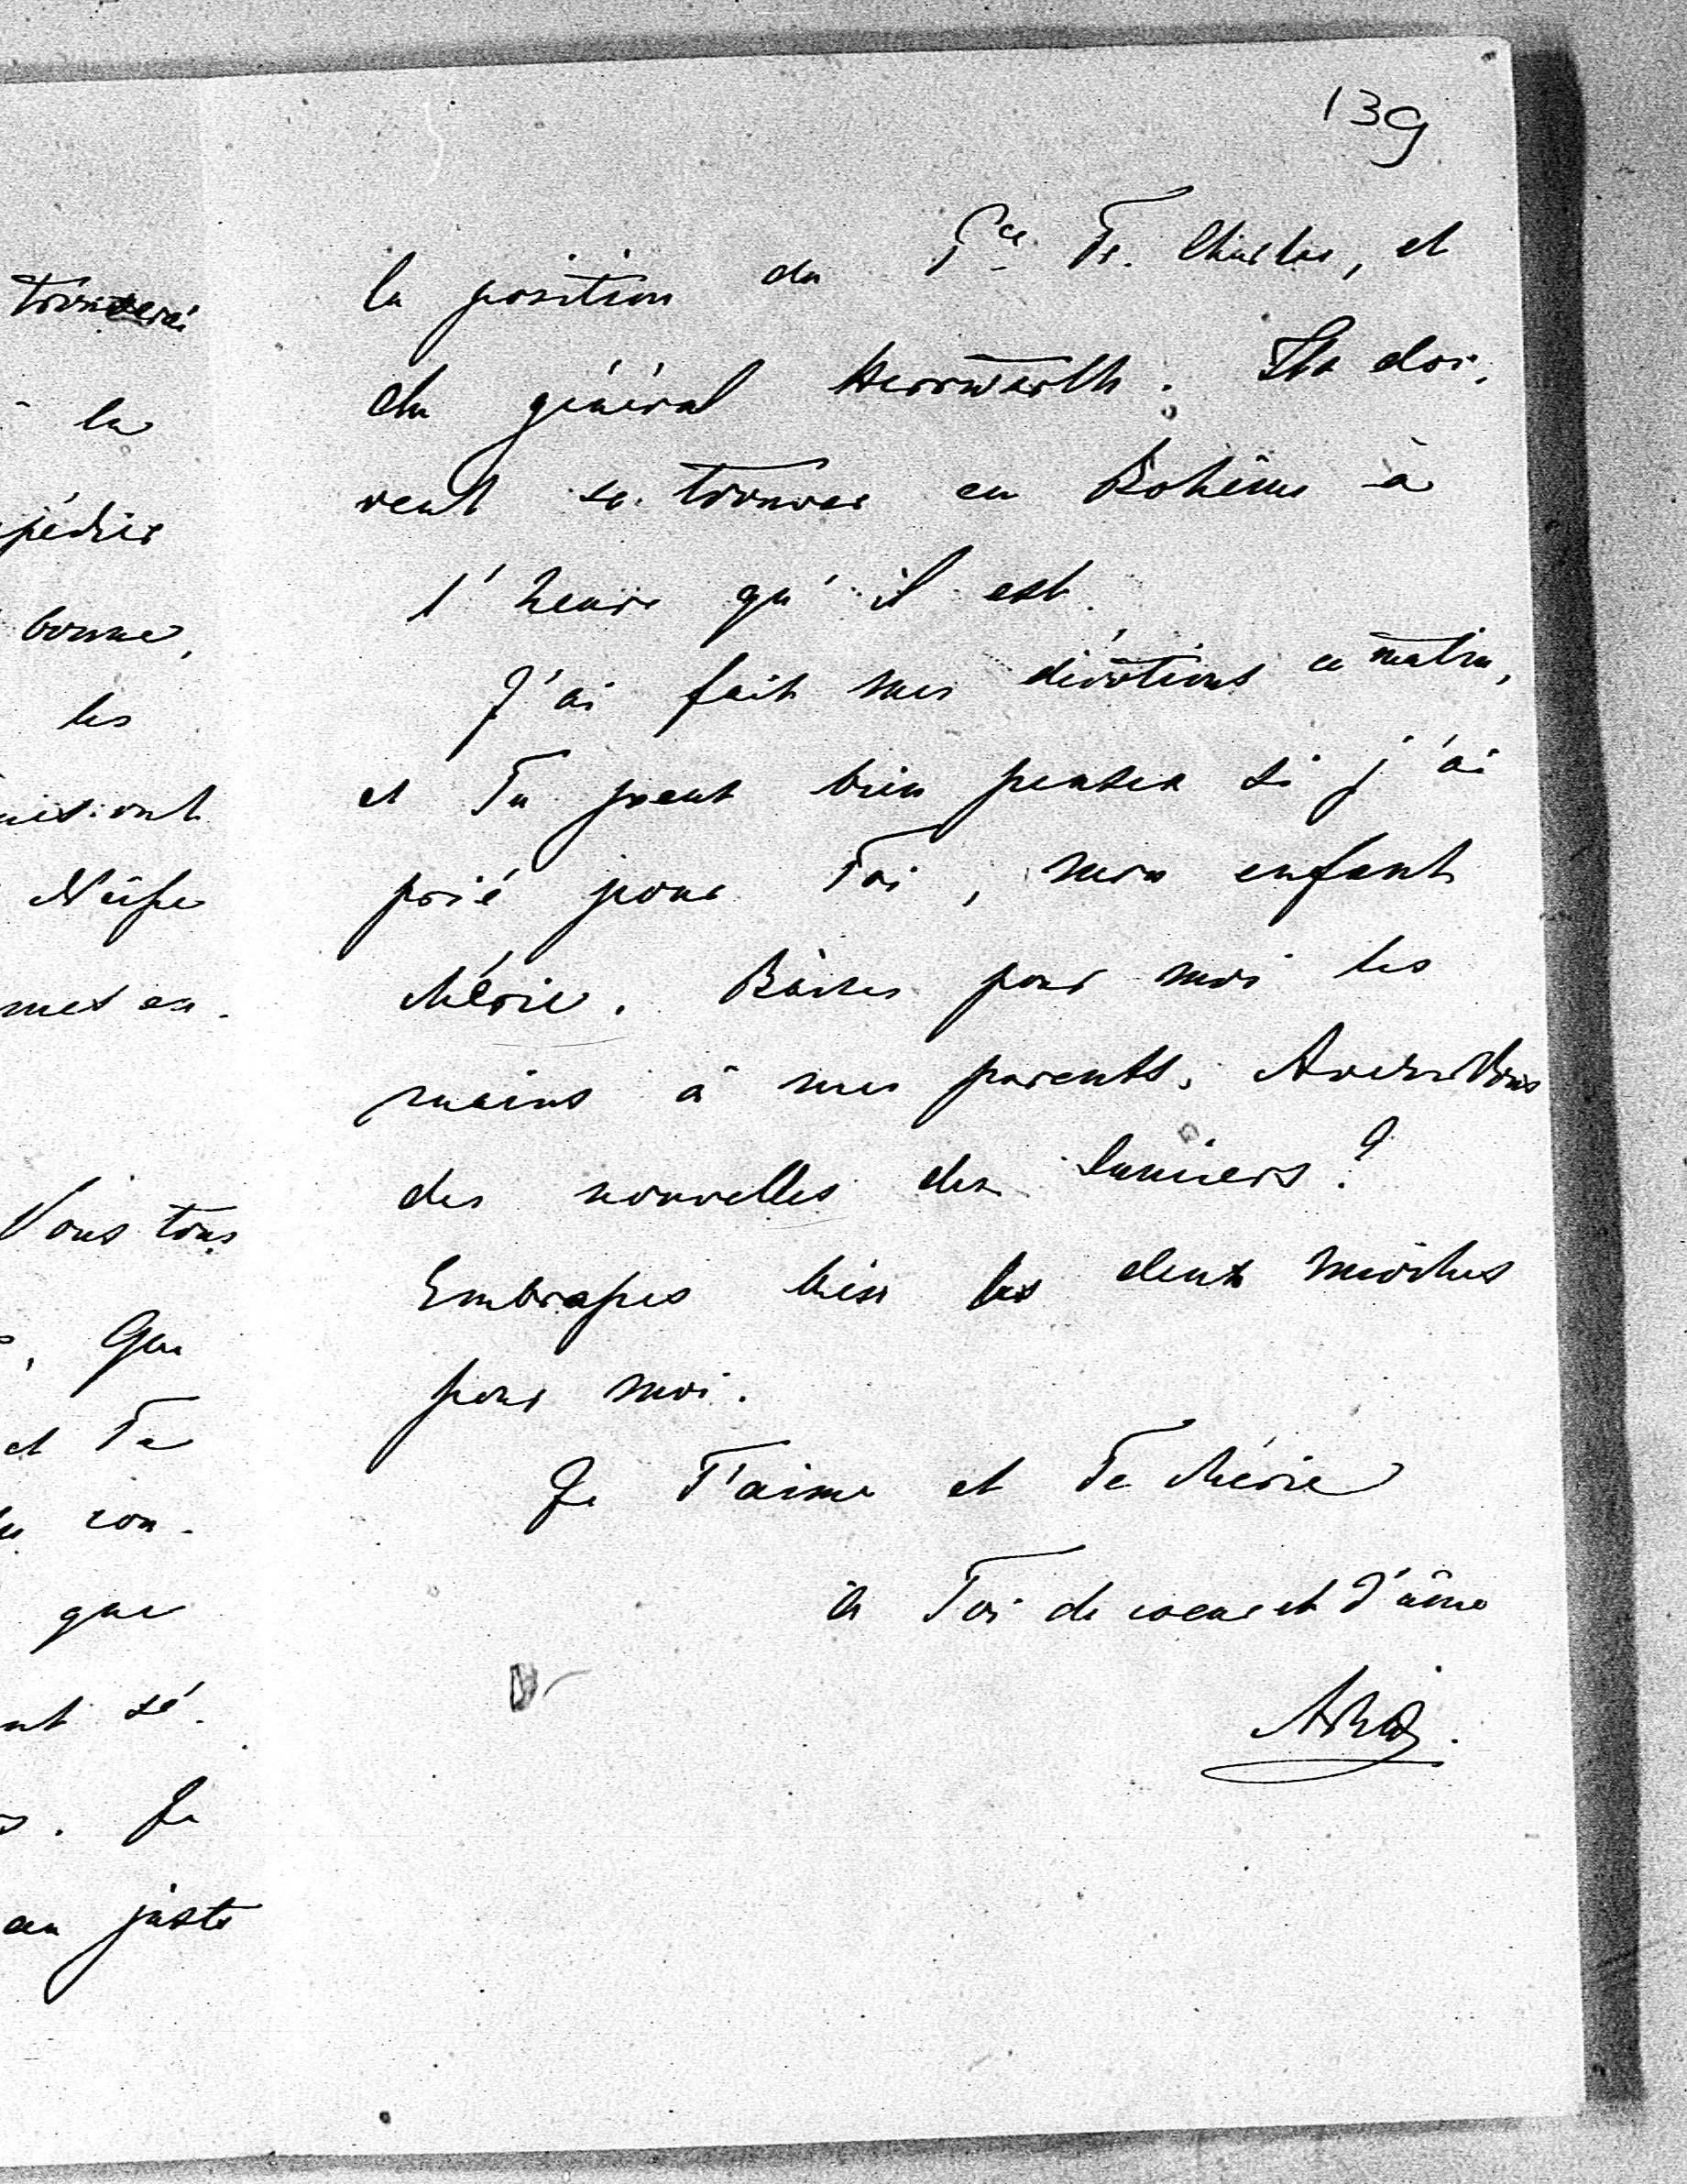 139
la position du Pce Fr. Charles, et
du général Herrwarth. Ils doi-
vent se trouver en Bohême à
l'heure qu'il est.
J'ai fait mes dévotions ce matin,
et Tu peut bien penser si j'ai
prié pour Toi, mon enfant
chérie. Baises pour moi les
mains à mes parents. Avez Vous
des nouvelles des
Embrasses bien les deux mioches
pour moi.
Je T'aime et Te chérie
à Toi de coeur et d'âme
la
pédier
bonne,
les
Neisse
Vous tous
, Que
et Ta
con-
que
nt sé-
. Je
au juste